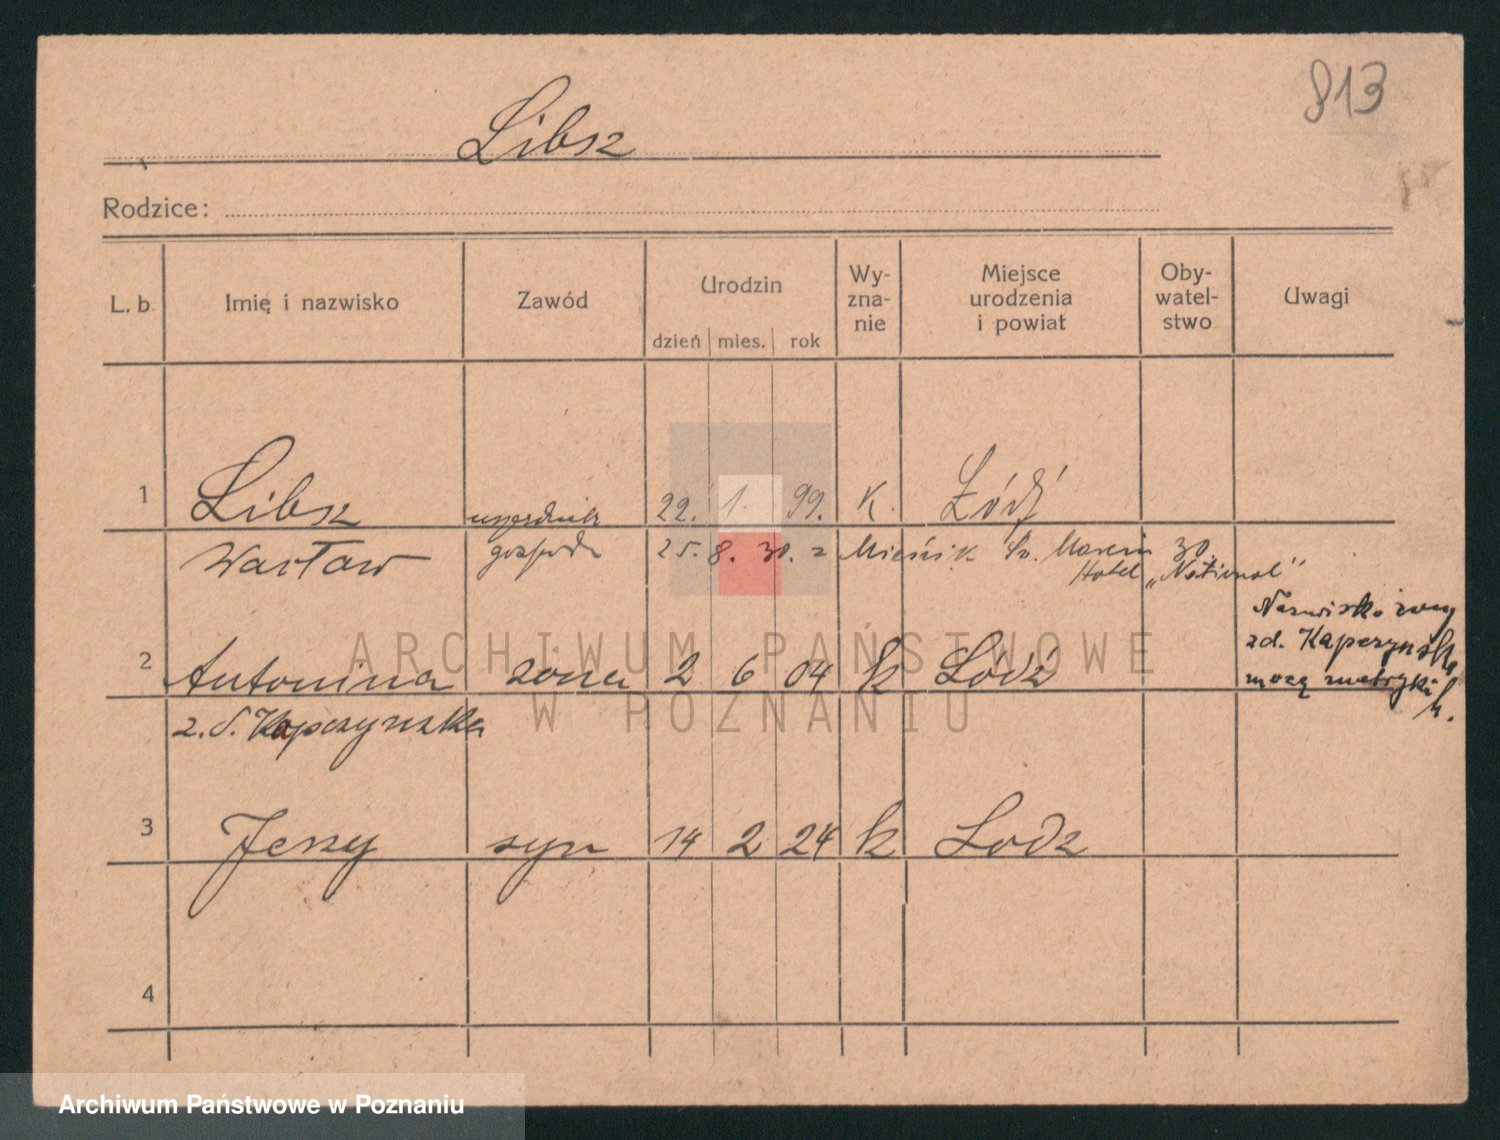 813
Libsz
Rodzice:
L. b. Imię i nazwisko Zawód Urodzin dzień mies. rok Wy-zna-nie Miejsce urodzenia i powiat Oby-watel-stwo Uwagi
1 Libsz urzędnik 22. 1. 99. K. Łódź
Wacław gospod. 25. 8. 30. z Mieśisk św. Marcin 30.
Hotel „National"
Nazwisko żony
zd. Kapczyńska
mocą metryki
2 Antonina żona 2 6 04 k Łódź
z. d. Kapczynska
3 Jerzy syn 14 2 24 k Lodz
4
ARCHIWUM PAŃSTWOWE
W POZNANIU
Archiwum Państwowe w Poznaniu